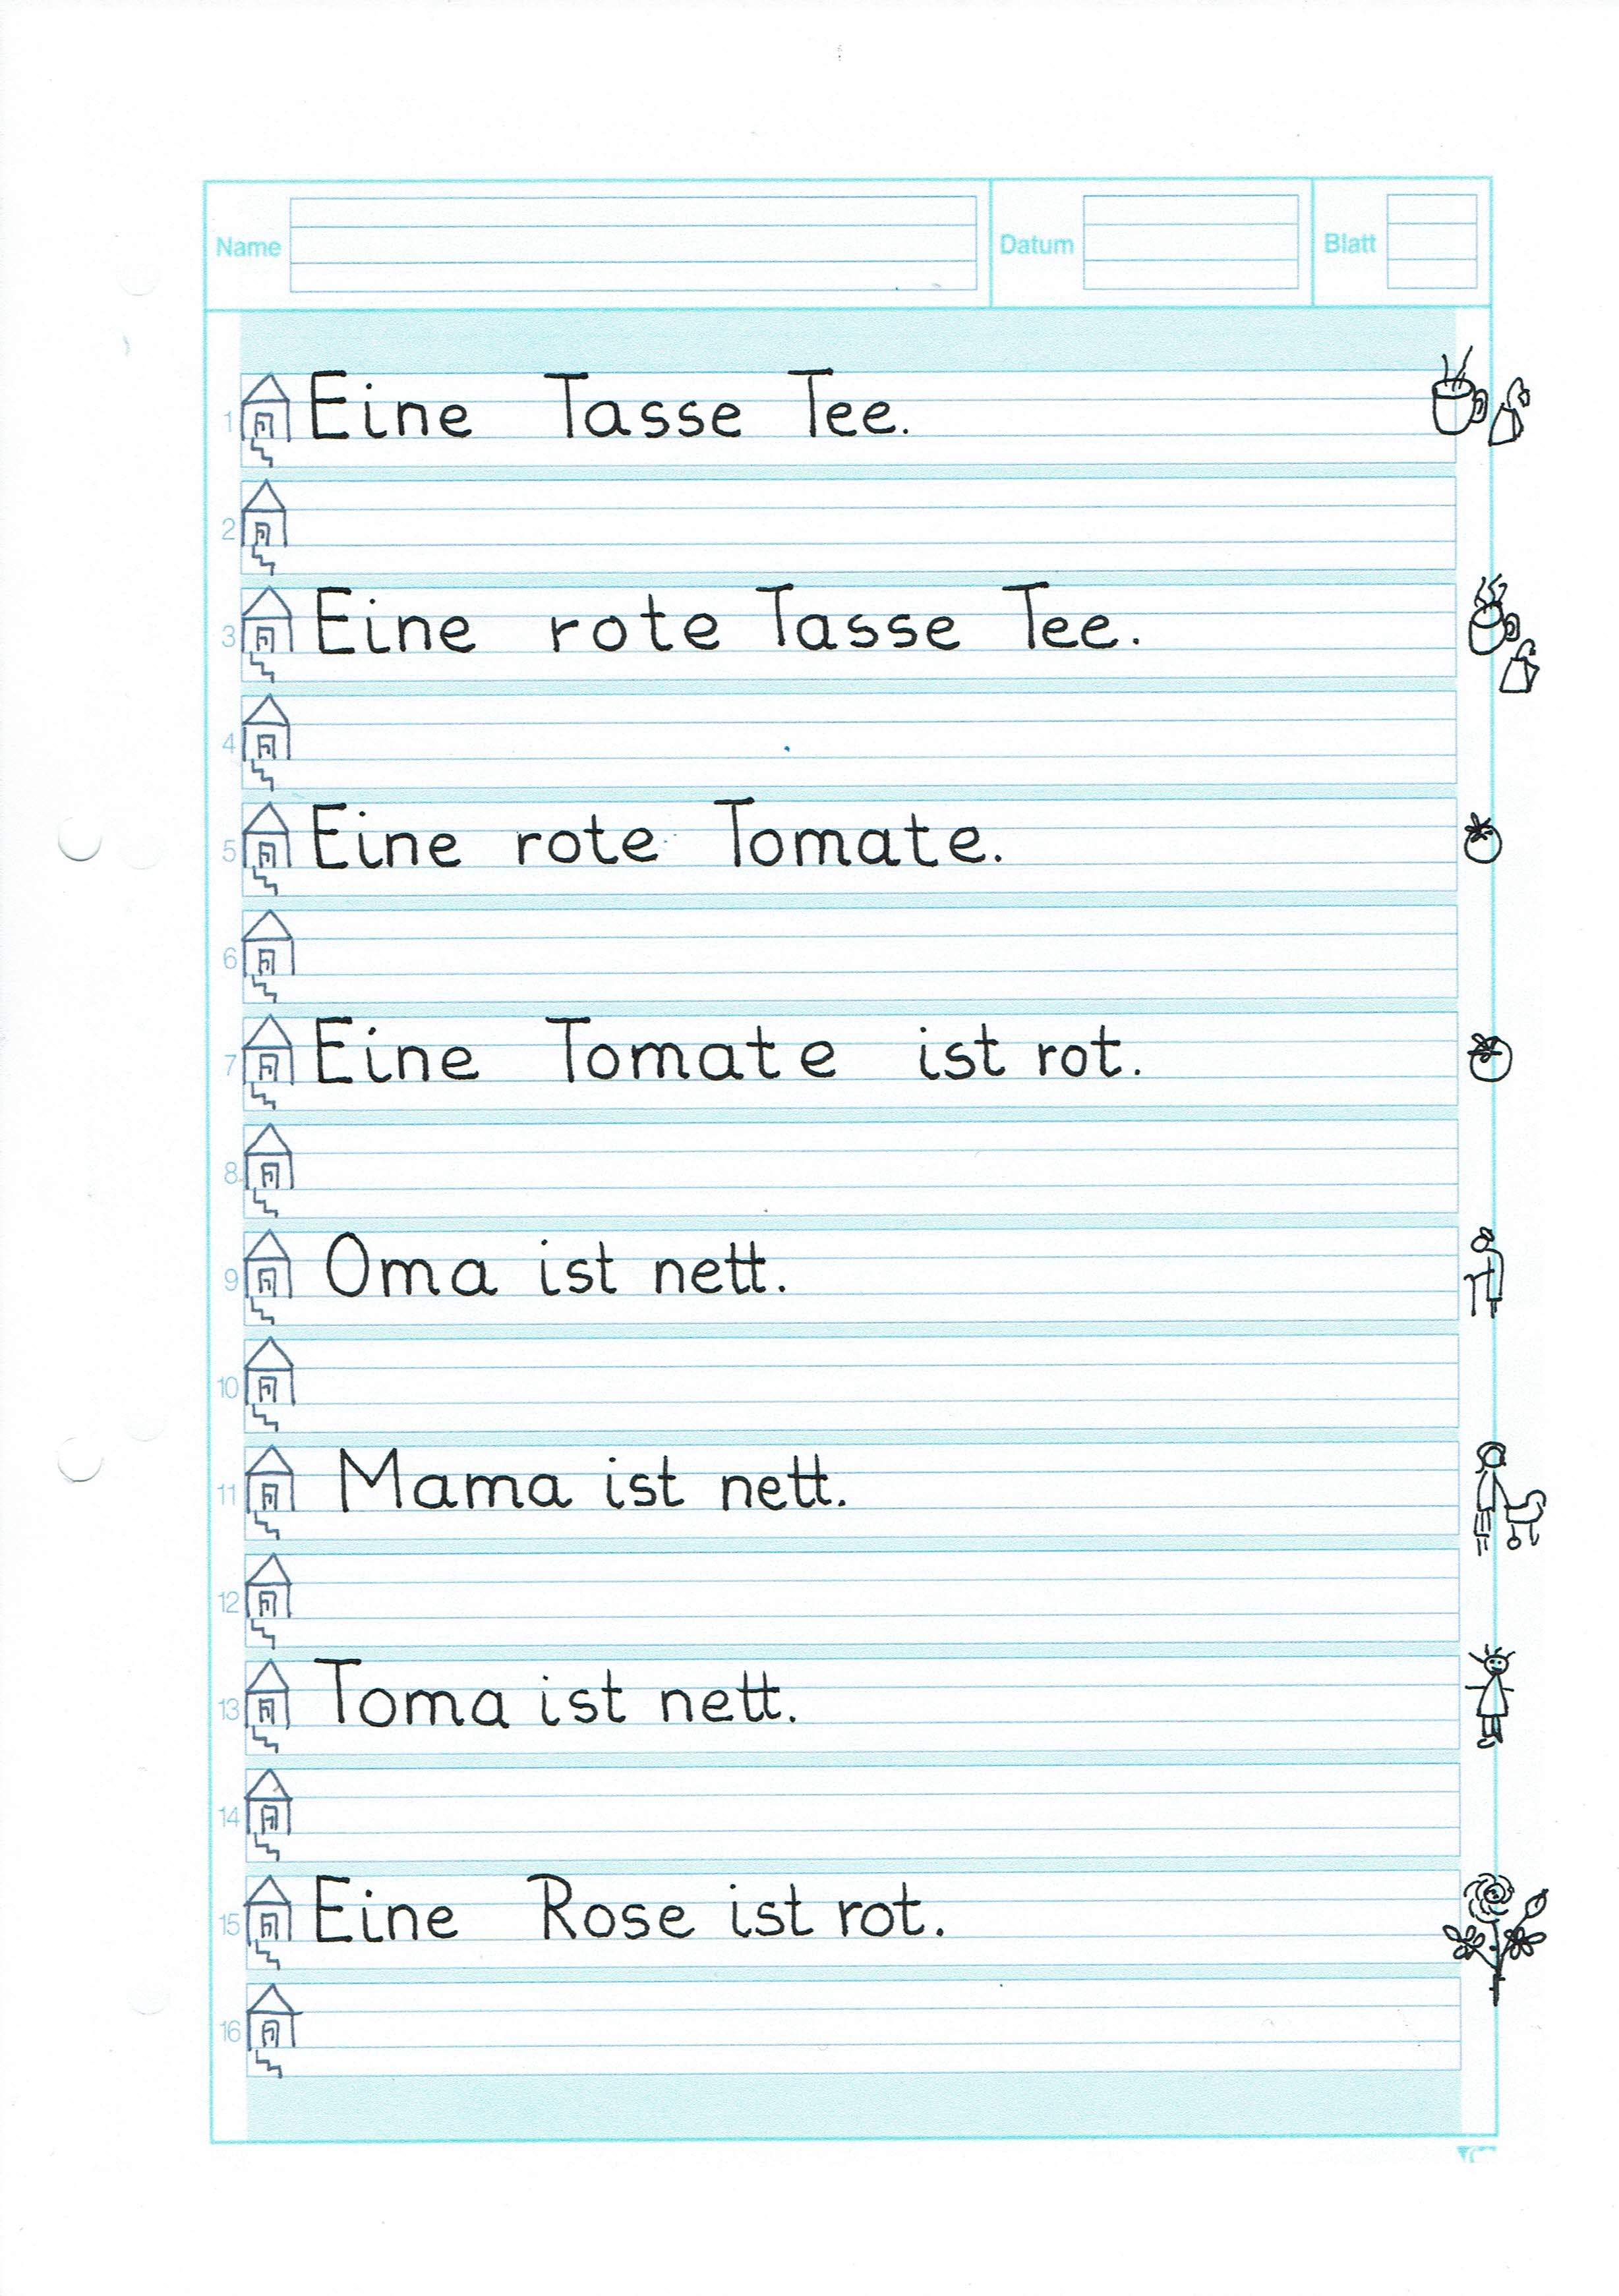 Name Datum Blatt
1 Eine Tasse Tee.
2
3 Eine rote Tasse Tee.
4
5 Eine rote Tomate.
6
7 Eine Tomate ist rot.
8
9 Oma ist nett.
10
11 Mama ist nett.
12
13 Toma ist nett.
14
15 Eine Rose ist rot.
16